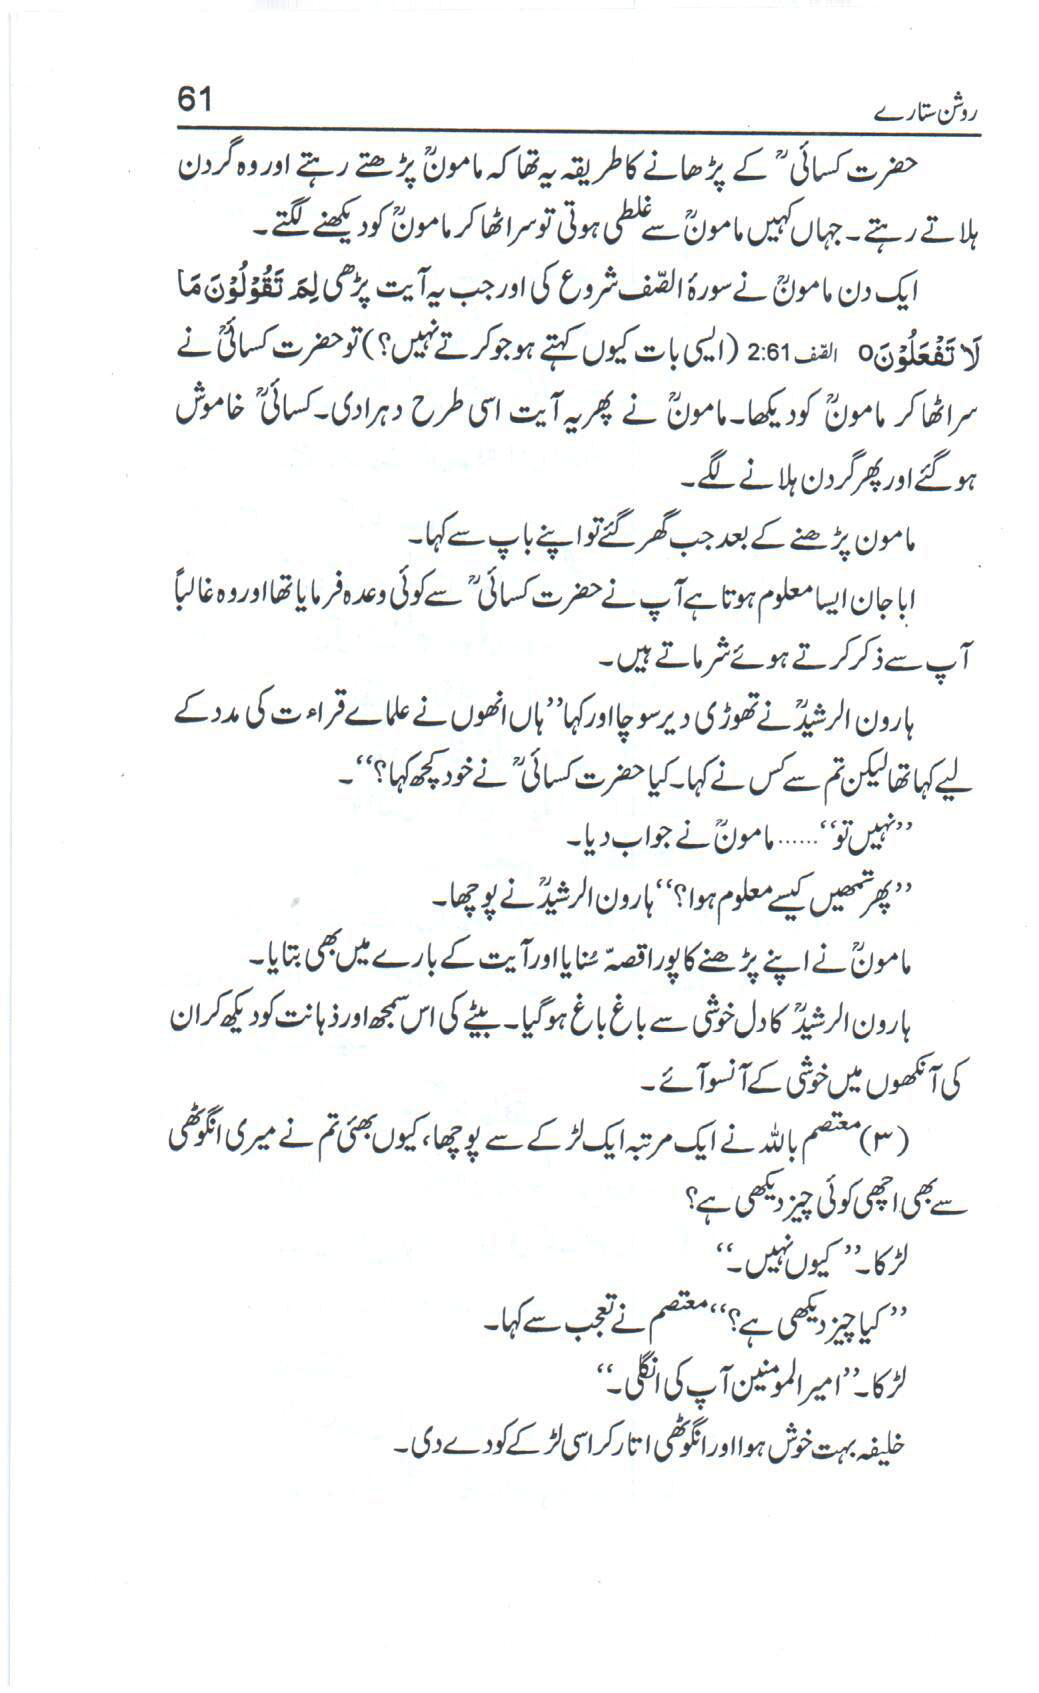 روشن ستارے 61
حضرت کسائیؒ کے پڑھانے کا طریقہ یہ تھا کہ مامونؒ پڑھتے رہتے اور وہ گردن
ہلاتے رہتے۔ جہاں کہیں مامونؒ سے غلطی ہوتی تو سر اٹھا کر مامونؒ کو دیکھنے لگتے۔
ایک دن مامونؒ نے سورۂ الصّف شروع کی اور جب یہ آیت پڑھی لِمَ تَقُوْلُوْنَ مَا
لَا تَفْعَلُوْنَo الصّف 2:61 (ایسی بات کیوں کہتے ہو جو کرتے نہیں؟) تو حضرت کسائیؒ نے
سر اٹھا کر مامونؒ کو دیکھا۔ مامونؒ نے پھر یہ آیت اسی طرح دہرا دی۔ کسائیؒ خاموش
ہو گئے اور پھر گردن ہلانے لگے۔
مامون پڑھنے کے بعد جب گھر گئے تو اپنے باپ سے کہا۔
ابا جان ایسا معلوم ہوتا ہے آپ نے حضرت کسائیؒ سے کوئی وعدہ فرمایا تھا اور وہ غالباً
آپ سے ذکر کرتے ہوئے شرماتے ہیں۔
ہارون الرشیدؒ نے تھوڑی دیر سوچا اور کہا ”ہاں انھوں نے علماے قراءت کی مدد کے
لیے کہا تھا لیکن تم سے کس نے کہا۔ کیا حضرت کسائیؒ نے خود کچھ کہا؟“۔
”نہیں تو“...... مامونؒ نے جواب دیا۔
”پھر تمھیں کیسے معلوم ہوا؟“ ہارون الرشیدؒ نے پوچھا۔
مامونؒ نے اپنے پڑھنے کا پورا قصہّ سُنایا اور آیت کے بارے میں بھی بتایا۔
ہارون الرشیدؒ کا دل خوشی سے باغ باغ ہو گیا۔ بیٹے کی اس سمجھ اور ذہانت کو دیکھ کر ان
کی آنکھوں میں خوشی کے آنسو آئے۔
(۳) معتصم باللہ نے ایک مرتبہ ایک لڑکے سے پوچھا، کیوں بھئی تم نے میری انگوٹھی
سے بھی اچھی کوئی چیز دیکھی ہے؟
لڑکا۔ ”کیوں نہیں۔“
”کیا چیز دیکھی ہے؟“ معتصم نے تعجب سے کہا۔
لڑکا۔ ”امیر المومنین آپ کی انگلی۔“
خلیفہ بہت خوش ہوا اور انگوٹھی اتار کر اسی لڑکے کو دے دی۔